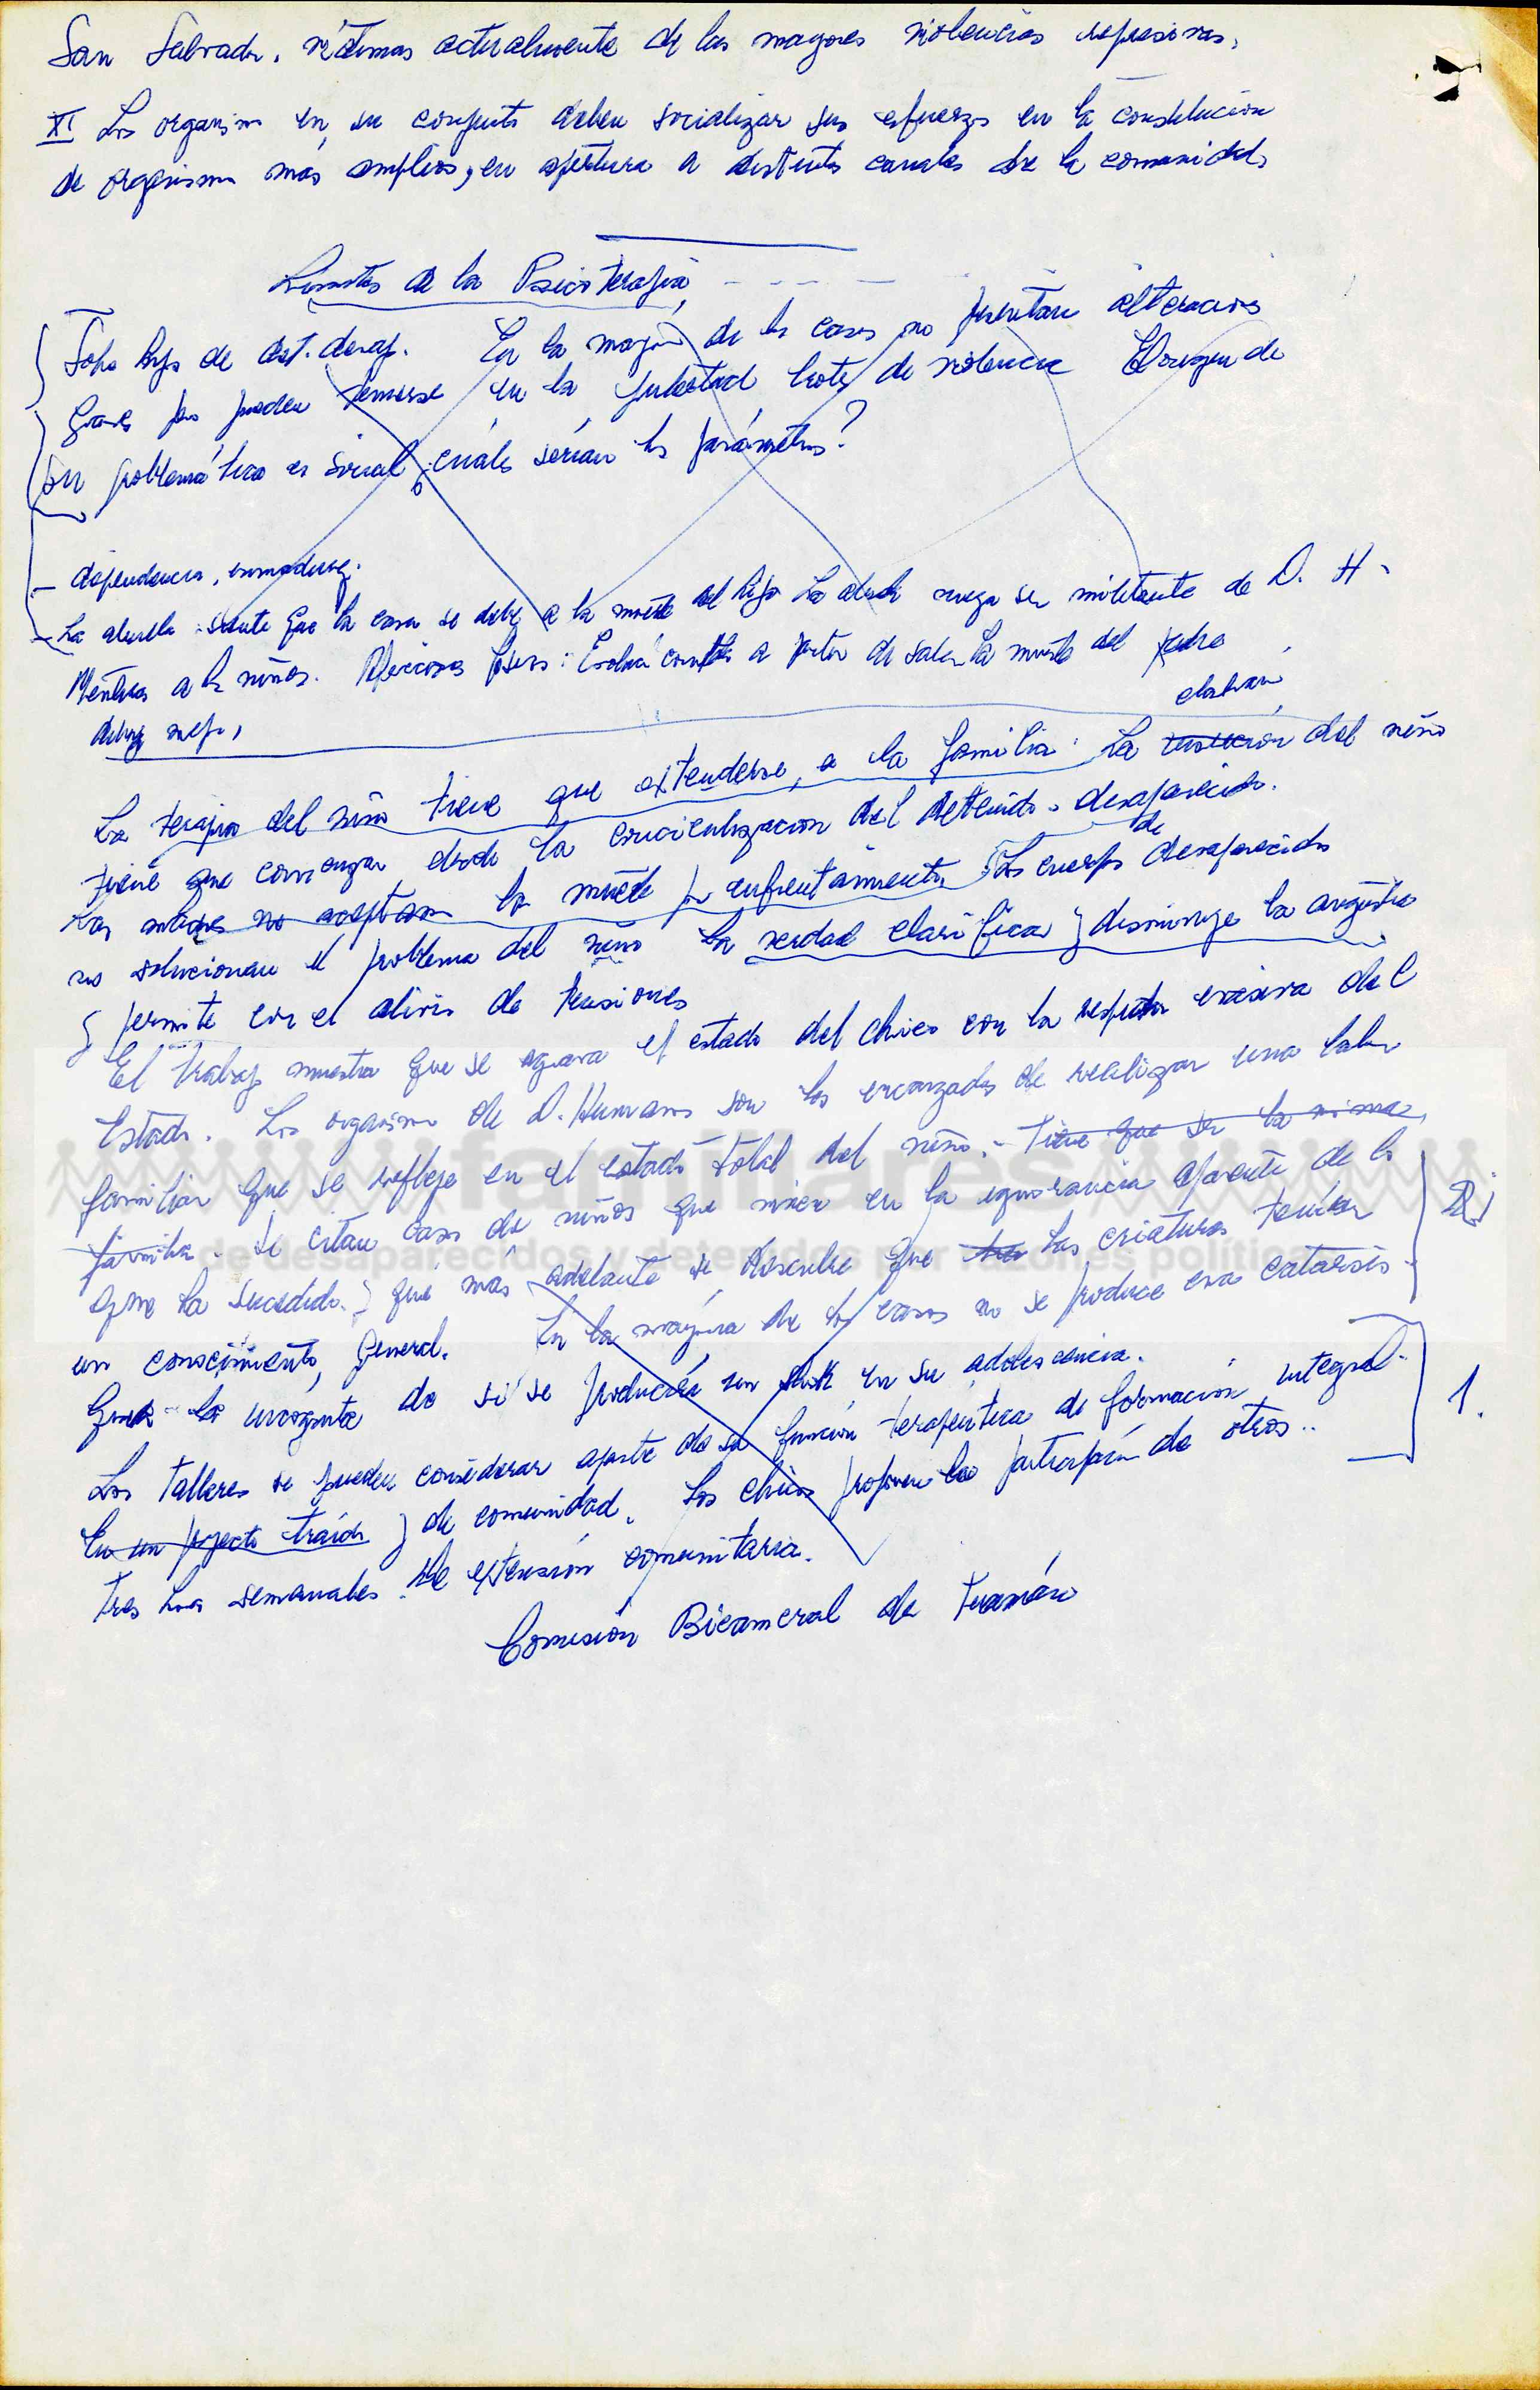 San Salvador, víctimas actualmente de las mayores violencias represivas.
XI Los organismos en su conjunto deben socializar sus esfuerzos en la constitución
de organismos más amplios, en apertura a distintos canales de la comunidad,
Límites de la Psicoterapia
hijos de det. desap. En la mayoría de los casos no presentan alteraciones
graves pero pueden temerse en la pubertad brotes de violencia El origen de
su problemática es social cuáles serían los parámetros?
- dependencia, inmadurez.
- La abuela siente que la casa se debe a la muerte del hijo La niega ser militante de D. H.
Mentiras a los niños. a partir de saber la muerte del padre
elaboración
La terapia del niño tiene que extenderse, a la familia: La del niño
tiene que comenzar desde la concientización del detenido-desaparecido.
de
Las madres no aceptan la muerte por enfrentamiento Los cuerpos desaparecidos
no solucionan el problema del niño La verdad clarifica y disminuye la angustia
y permite con el alivio de tensiones
El trabajo muestra que se agrava el estado del chico con la evasiva del
Estado. Los organismos de D. Humanos son los encargados de realizar una labor
familiar que se refleje en el estado total del niño. - Tiene que ser la misma
familia. Se citan casos de niños que viven en la ignorancia aparente de lo
que ha sucedido y que más adelante se descubre que las criaturas tenían
un conocimiento general. En la mayoría de los casos no se produce esa catarsis.
la incógnita de si se producirá un en su adolescencia.
Los Talleres se pueden considerar aparte de su función terapéutica de formación integral.
En un proyecto y de comunidad. Los chicos proponen la participación de otros..
Tres horas semanales. De extensión comunitaria.
2)
1.
Comisión Bicameral de Tucumán
familiares
de desaparecidos y detenidos por razones políticas